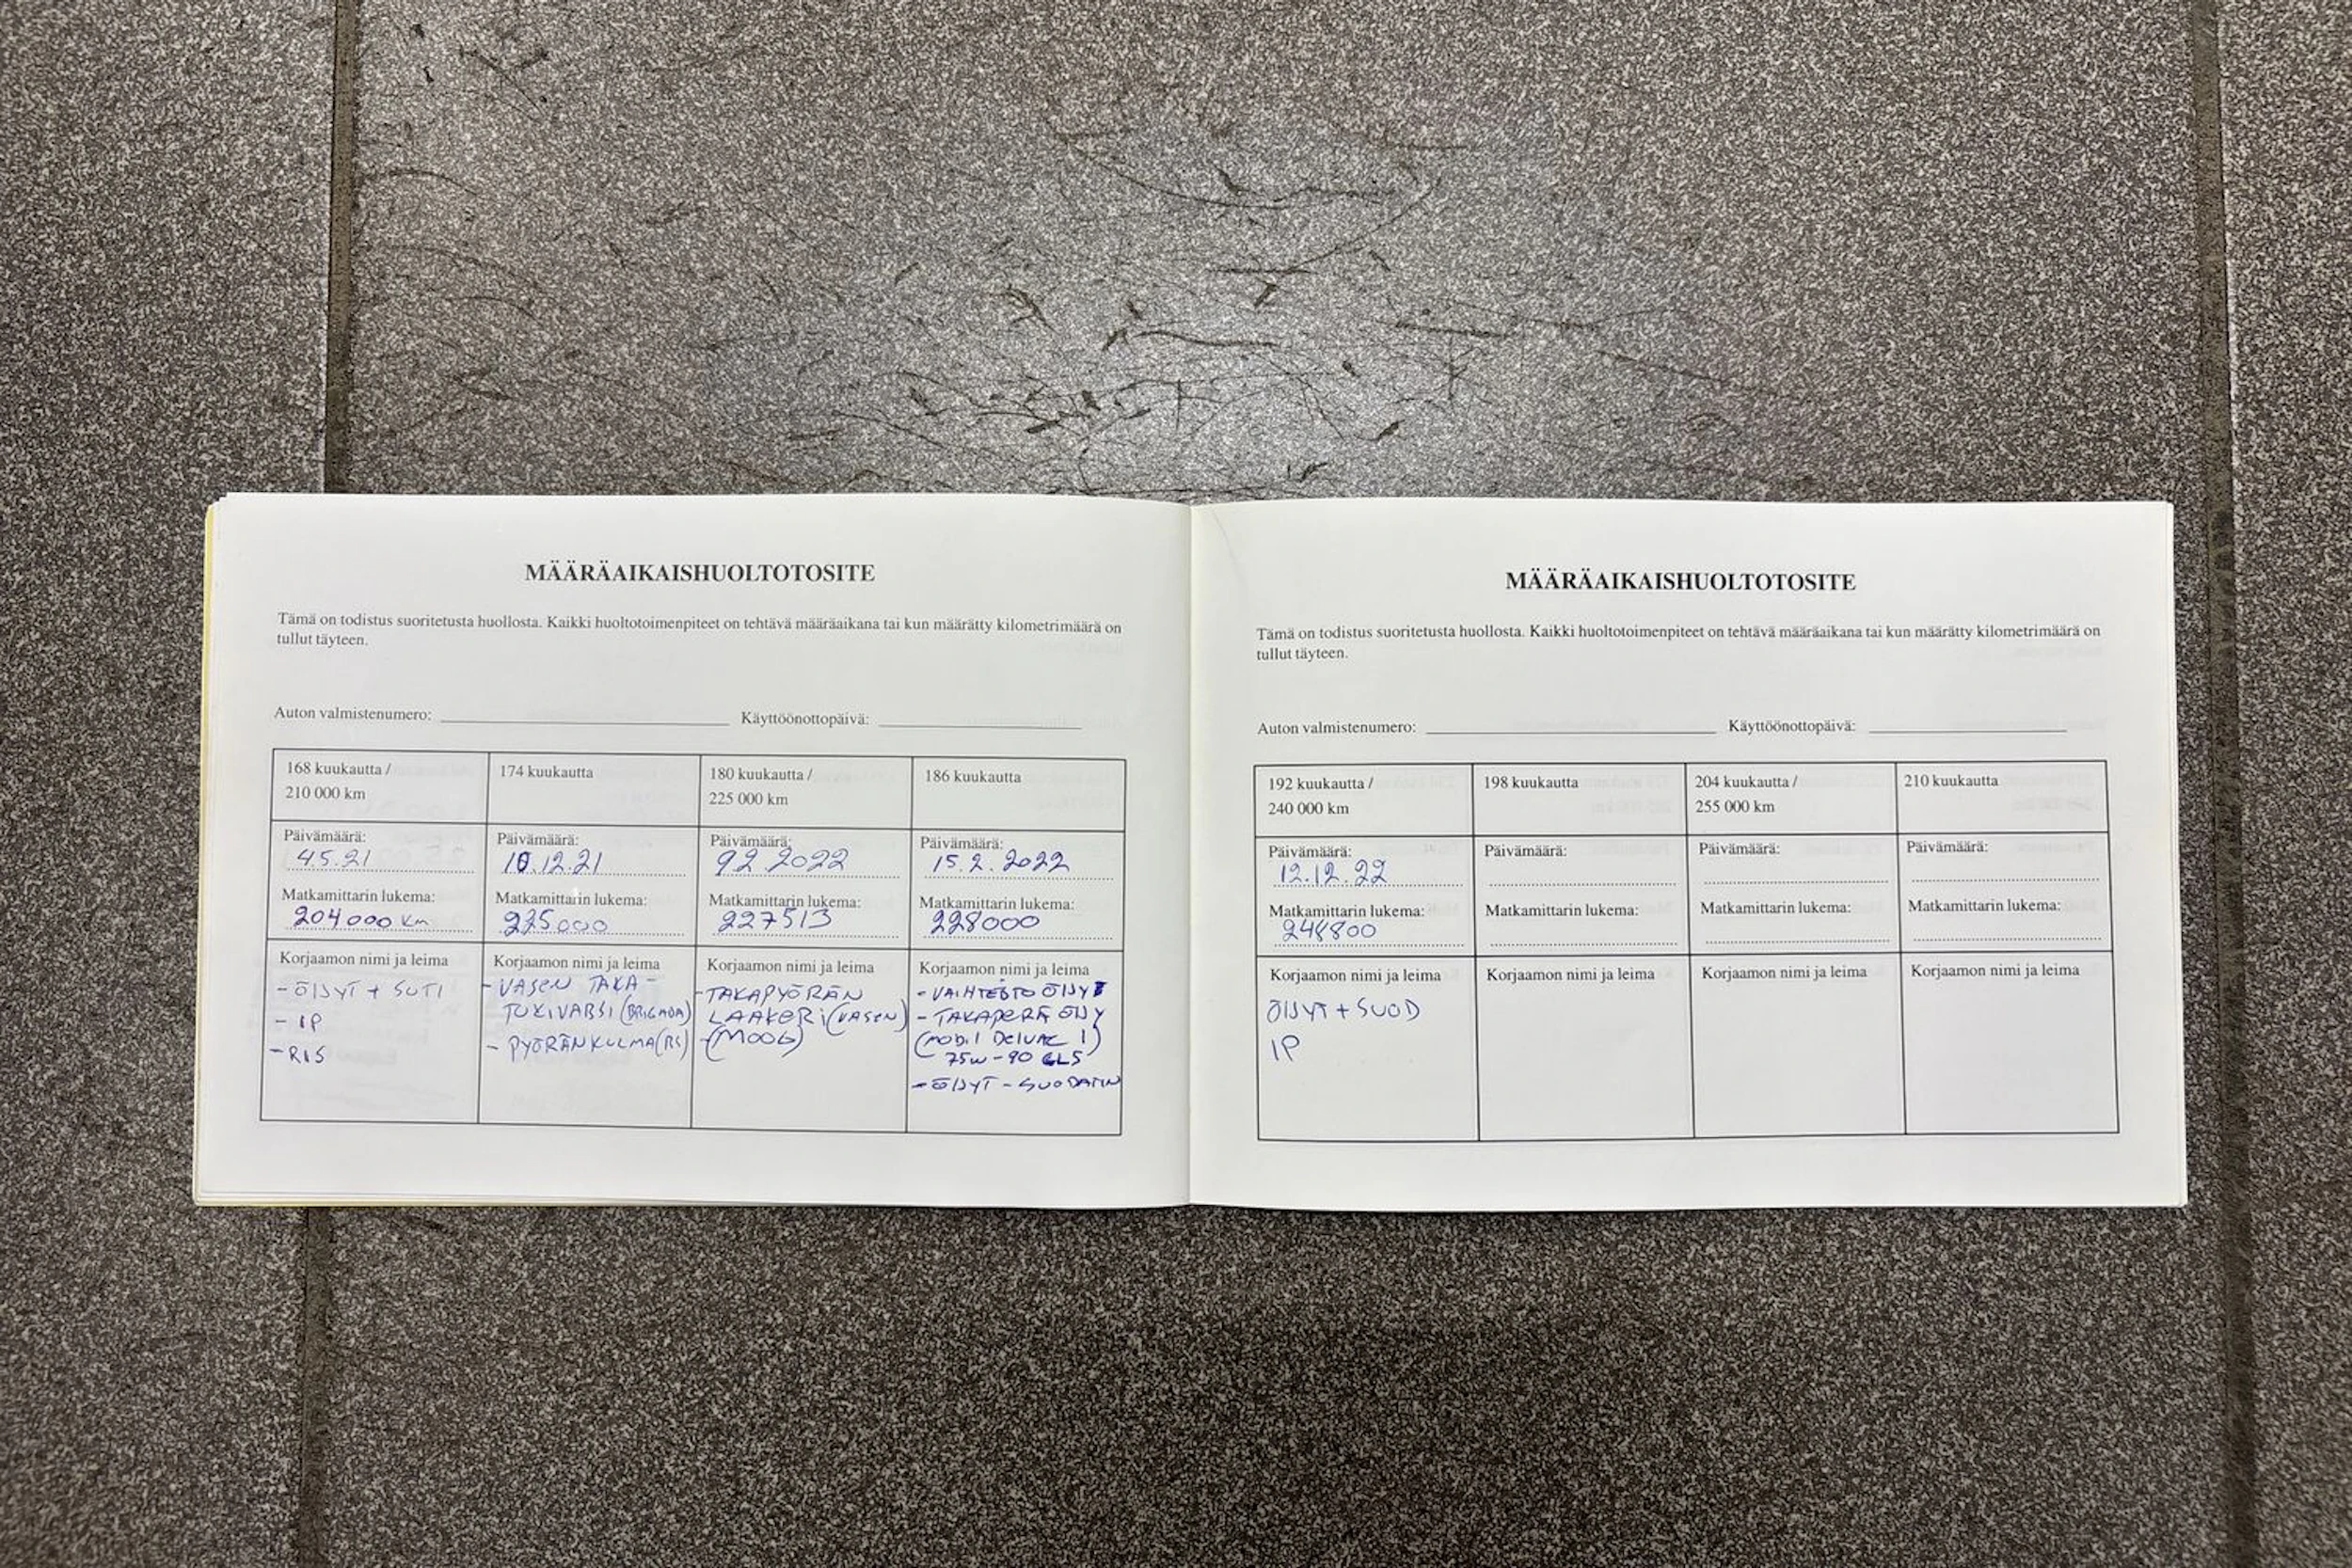 MÄÄRÄAIKAISHUOLTOTOSITE
Tämä on todistus suoritetusta huollosta. Kaikki huoltotoimenpiteet on tehtävä määräaikana tai kun määrätty kilometrimäärä on
tullut täyteen.
Auton valmistenumero: Käyttöönottopäivä:
168 kuukautta /
210 000 km
Päivämäärä:
4.5.21
Matkamittarin lukema:
204000 km
Korjaamon nimi ja leima
- ÖIJYT + SUTI
- IP
- RIS
174 kuukautta
Päivämäärä:
10.12.21
Matkamittarin lukema:
225000
Korjaamon nimi ja leima
- VASEN TAKA-
TUKIVARSI (BRIGADA)
- PYÖRÄNKULMA(RS)
180 kuukautta /
225 000 km
Päivämäärä:
9.2.2022
Matkamittarin lukema:
227513
Korjaamon nimi ja leima
- TAKAPYÖRÄN
LAAKERI (VASEN)
- (MOOG)
186 kuukautta
Päivämäärä:
15.2.2022
Matkamittarin lukema:
228000
Korjaamon nimi ja leima
- VAIHTEISTO ÖIJYT
- TAKAPERÄ ÖIJY
(Mobil Delvac 1)
75W-90 GL5
- ÖIJYT - SUODATIN
MÄÄRÄAIKAISHUOLTOTOSITE
Tämä on todistus suoritetusta huollosta. Kaikki huoltotoimenpiteet on tehtävä määräaikana tai kun määrätty kilometrimäärä on
tullut täyteen.
Auton valmistenumero: Käyttöönottopäivä:
192 kuukautta /
240 000 km
Päivämäärä:
12.12.22
Matkamittarin lukema:
Korjaamon nimi ja leima
ÖIJYT + SUOD
IP
198 kuukautta
Päivämäärä:
Matkamittarin lukema:
Korjaamon nimi ja leima
204 kuukautta /
255 000 km
Päivämäärä:
Matkamittarin lukema:
Korjaamon nimi ja leima
210 kuukautta
Päivämäärä:
Matkamittarin lukema:
Korjaamon nimi ja leima